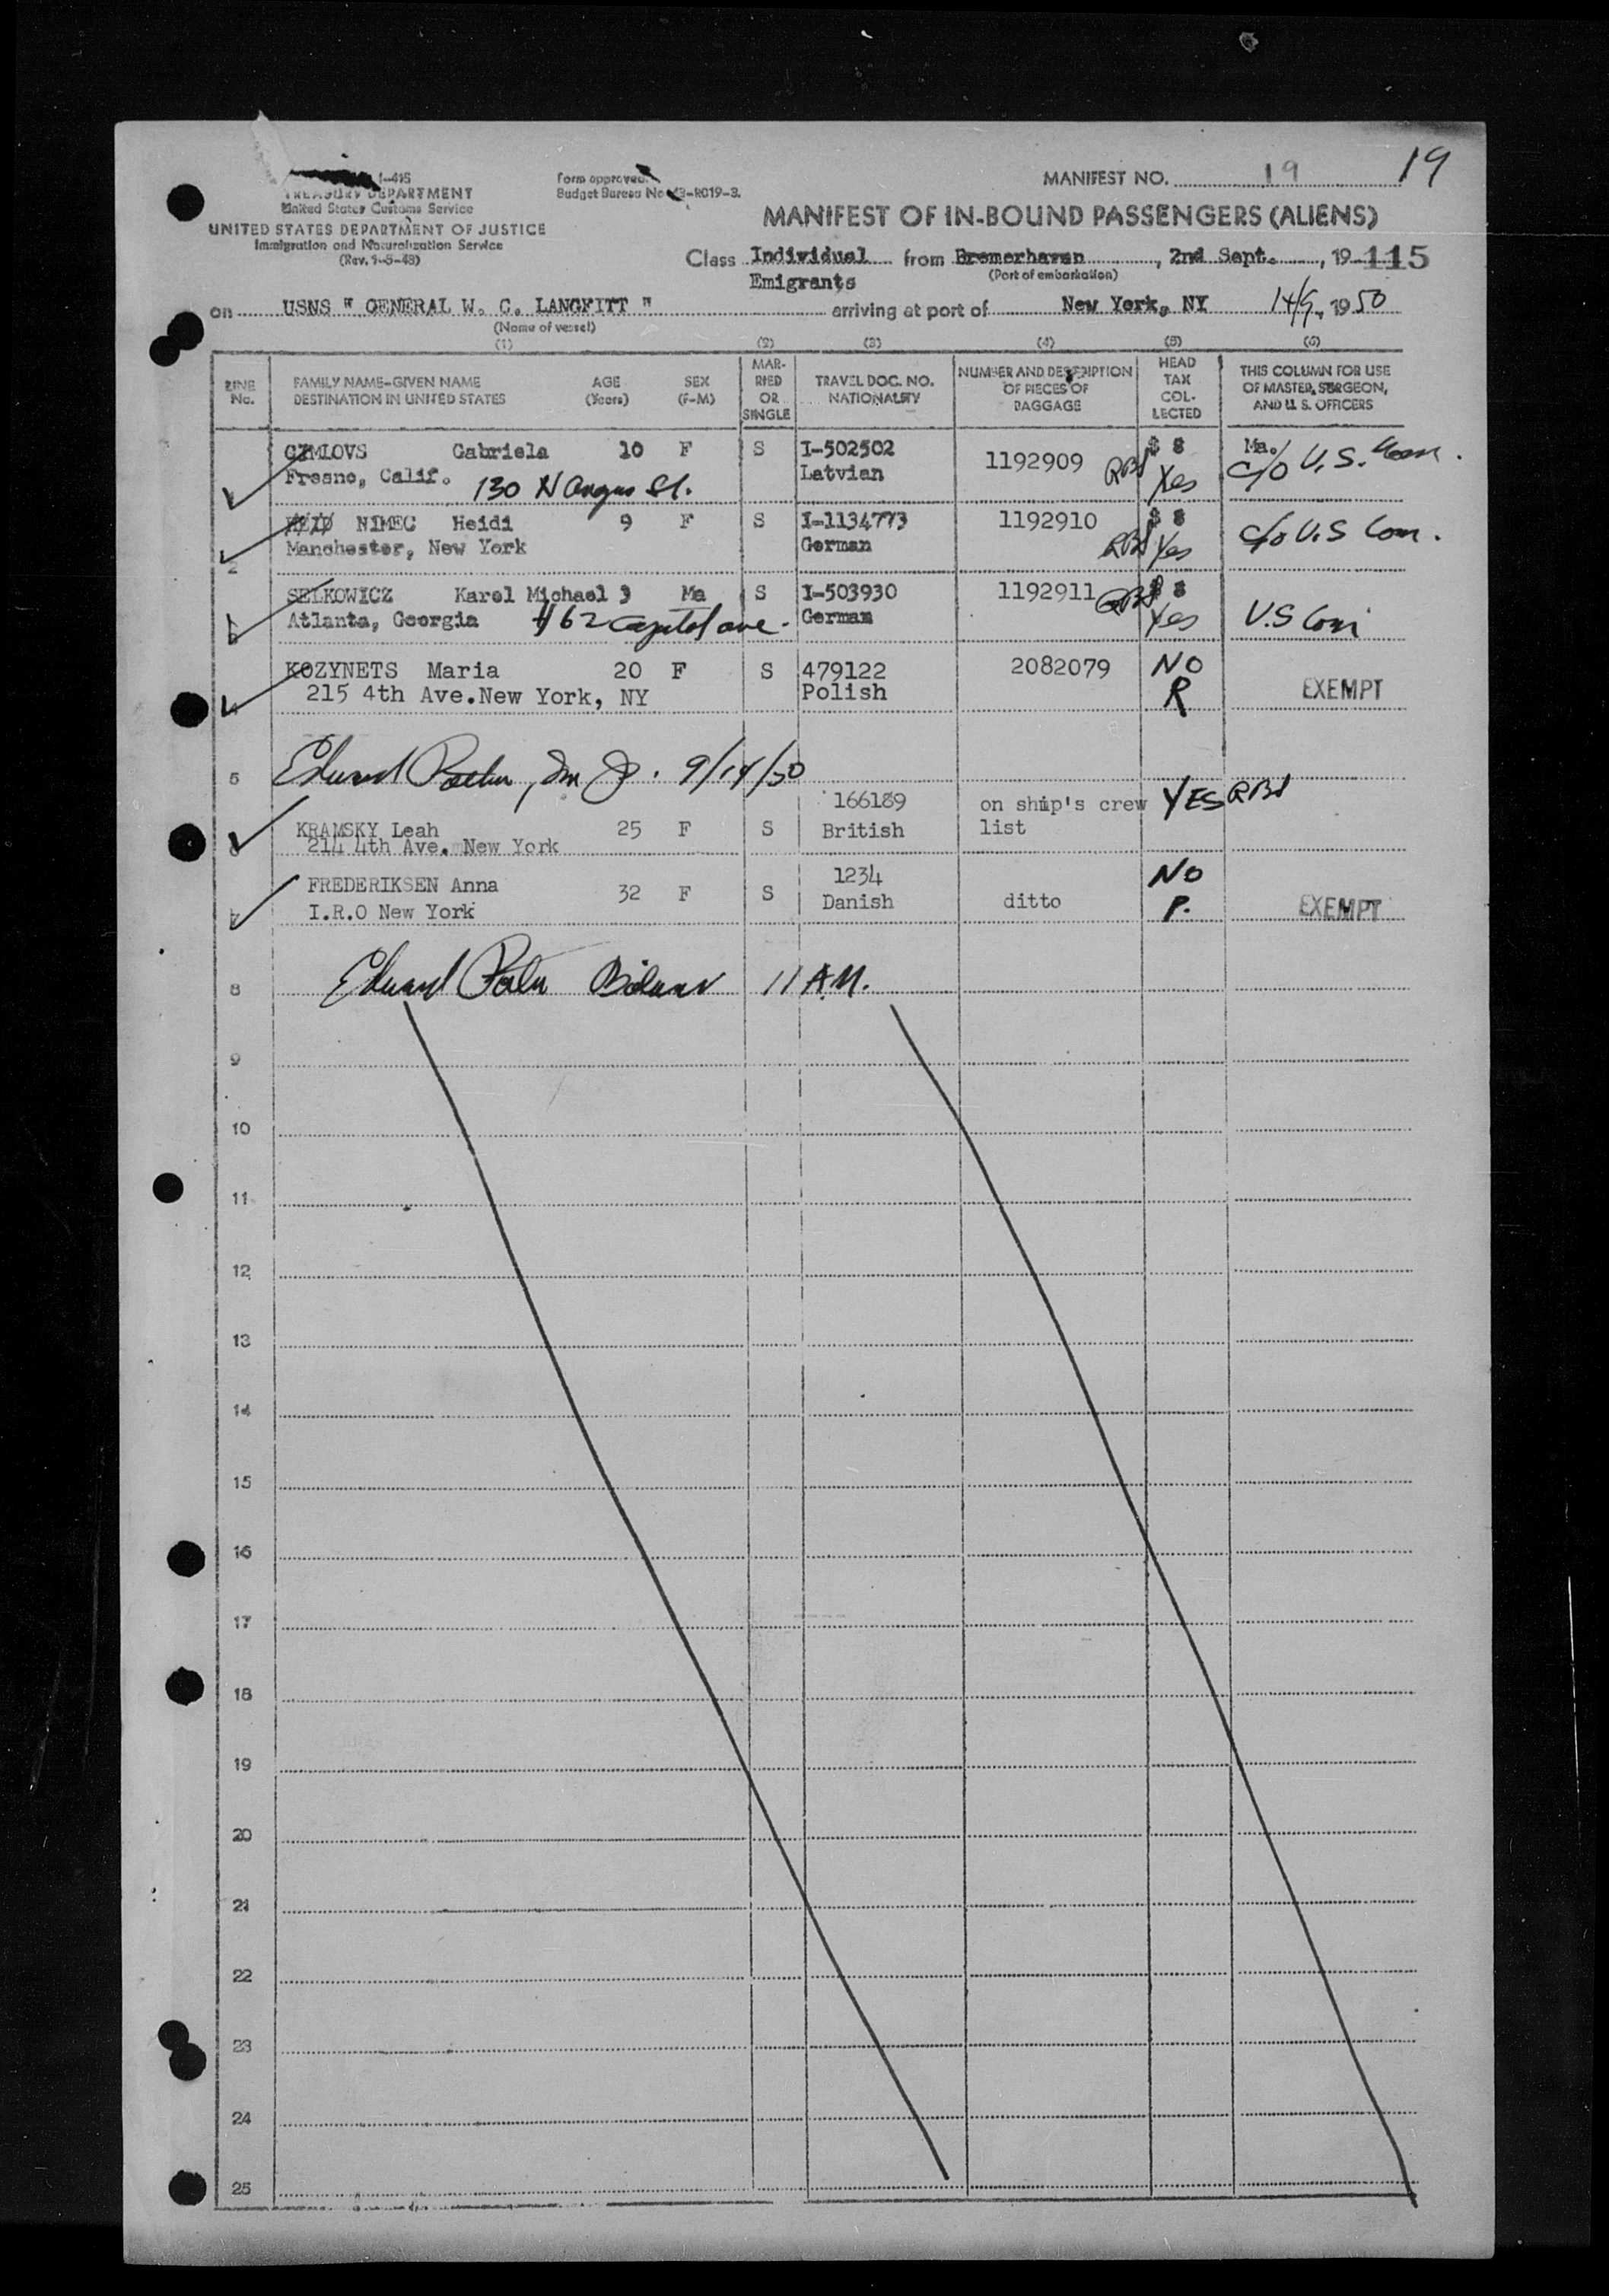 I-415
TREASURY DEPARTMENT
United States Customs Service
UNITED STATES DEPARTMENT OF JUSTICE
Immigration and Naturalization Service
(Rev. 1-5-48)
Form approved.
Budget Bureau No. 43-R019-3.
MANIFEST NO. 19
19
MANIFEST OF IN-BOUND PASSENGERS (ALIENS)
Class Individual from Bremerhaven, 2nd Sept., 19 115
Emigrants (Port of embarkation)
on USNS " GENERAL W. C. LANGFITT " arriving at port of New York, NY 14/9, 1950
(Name of vessel)
(1) (2) (3) (4) (5) (6)
LINE No. FAMILY NAME-GIVEN NAME DESTINATION IN UNITED STATES AGE (Years) SEX (F-M) MARRIED OR SINGLE TRAVEL DOC. NO. NATIONALITY NUMBER AND DESCRIPTION OF PIECES OF BAGGAGE HEAD TAX COLLECTED THIS COLUMN FOR USE OF MASTER, SURGEON, AND U. S. OFFICERS
1 Gabriela 10 F S I-502502 1192909 $ 8 Ma.
Fresno, Calif. 130 N Angus St. Latvian RBJ Yes c/o U.S.
2 NIMEC Heidi 9 F S I-1134773 1192910 $ 8
Manchester, New York German Yes c/o U.S Com.
3 SELKOWICZ Karel Michael 3 Ma S I-503930 1192911 $ 8
Atlanta, Georgia 462 Capitol ave. German Yes U.S Com
4 KOZYNETS Maria 20 F S 479122 2082079 NO
215 4th Ave.New York, NY Polish R EXEMPT
5 Edward 9/14/50
6 KRAMSKY Leah 25 F S 166189 on ship's crew YES
214 4th Ave. New York British list
7 FREDERIKSEN Anna 32 F S 1234 ditto NO
I.R.O New York Danish P. EXEMPT
8 Edward 11 A.M.
9
10
11
12
13
14
15
16
17
18
19
20
21
22
23
24
25